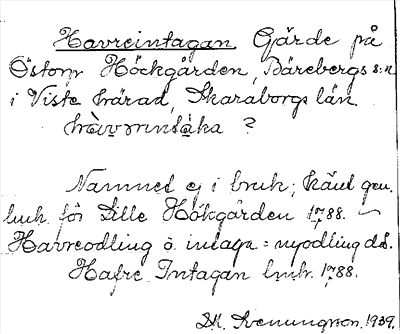 Havreintagan, Gärde på
Östom Höckgården, Bärebergs s:n
i Viste härad, Skaraborgs län.
?
Namnet ej i bruk; känt gen.
lmh. för Lille Hökgården 1788. ~
Havreodling o. intaga = nyodling ds.
Hafre Intagan lmh. 1788.
D.A. Svenungson. 1939.